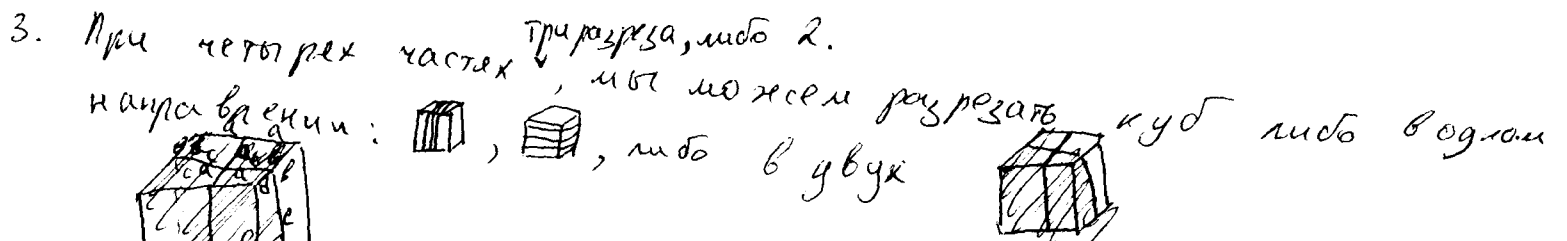 3. При четырех частях три разреза, либо 2.
, мы можем разрезать куб либо в одном
направлении: , , либо в двух